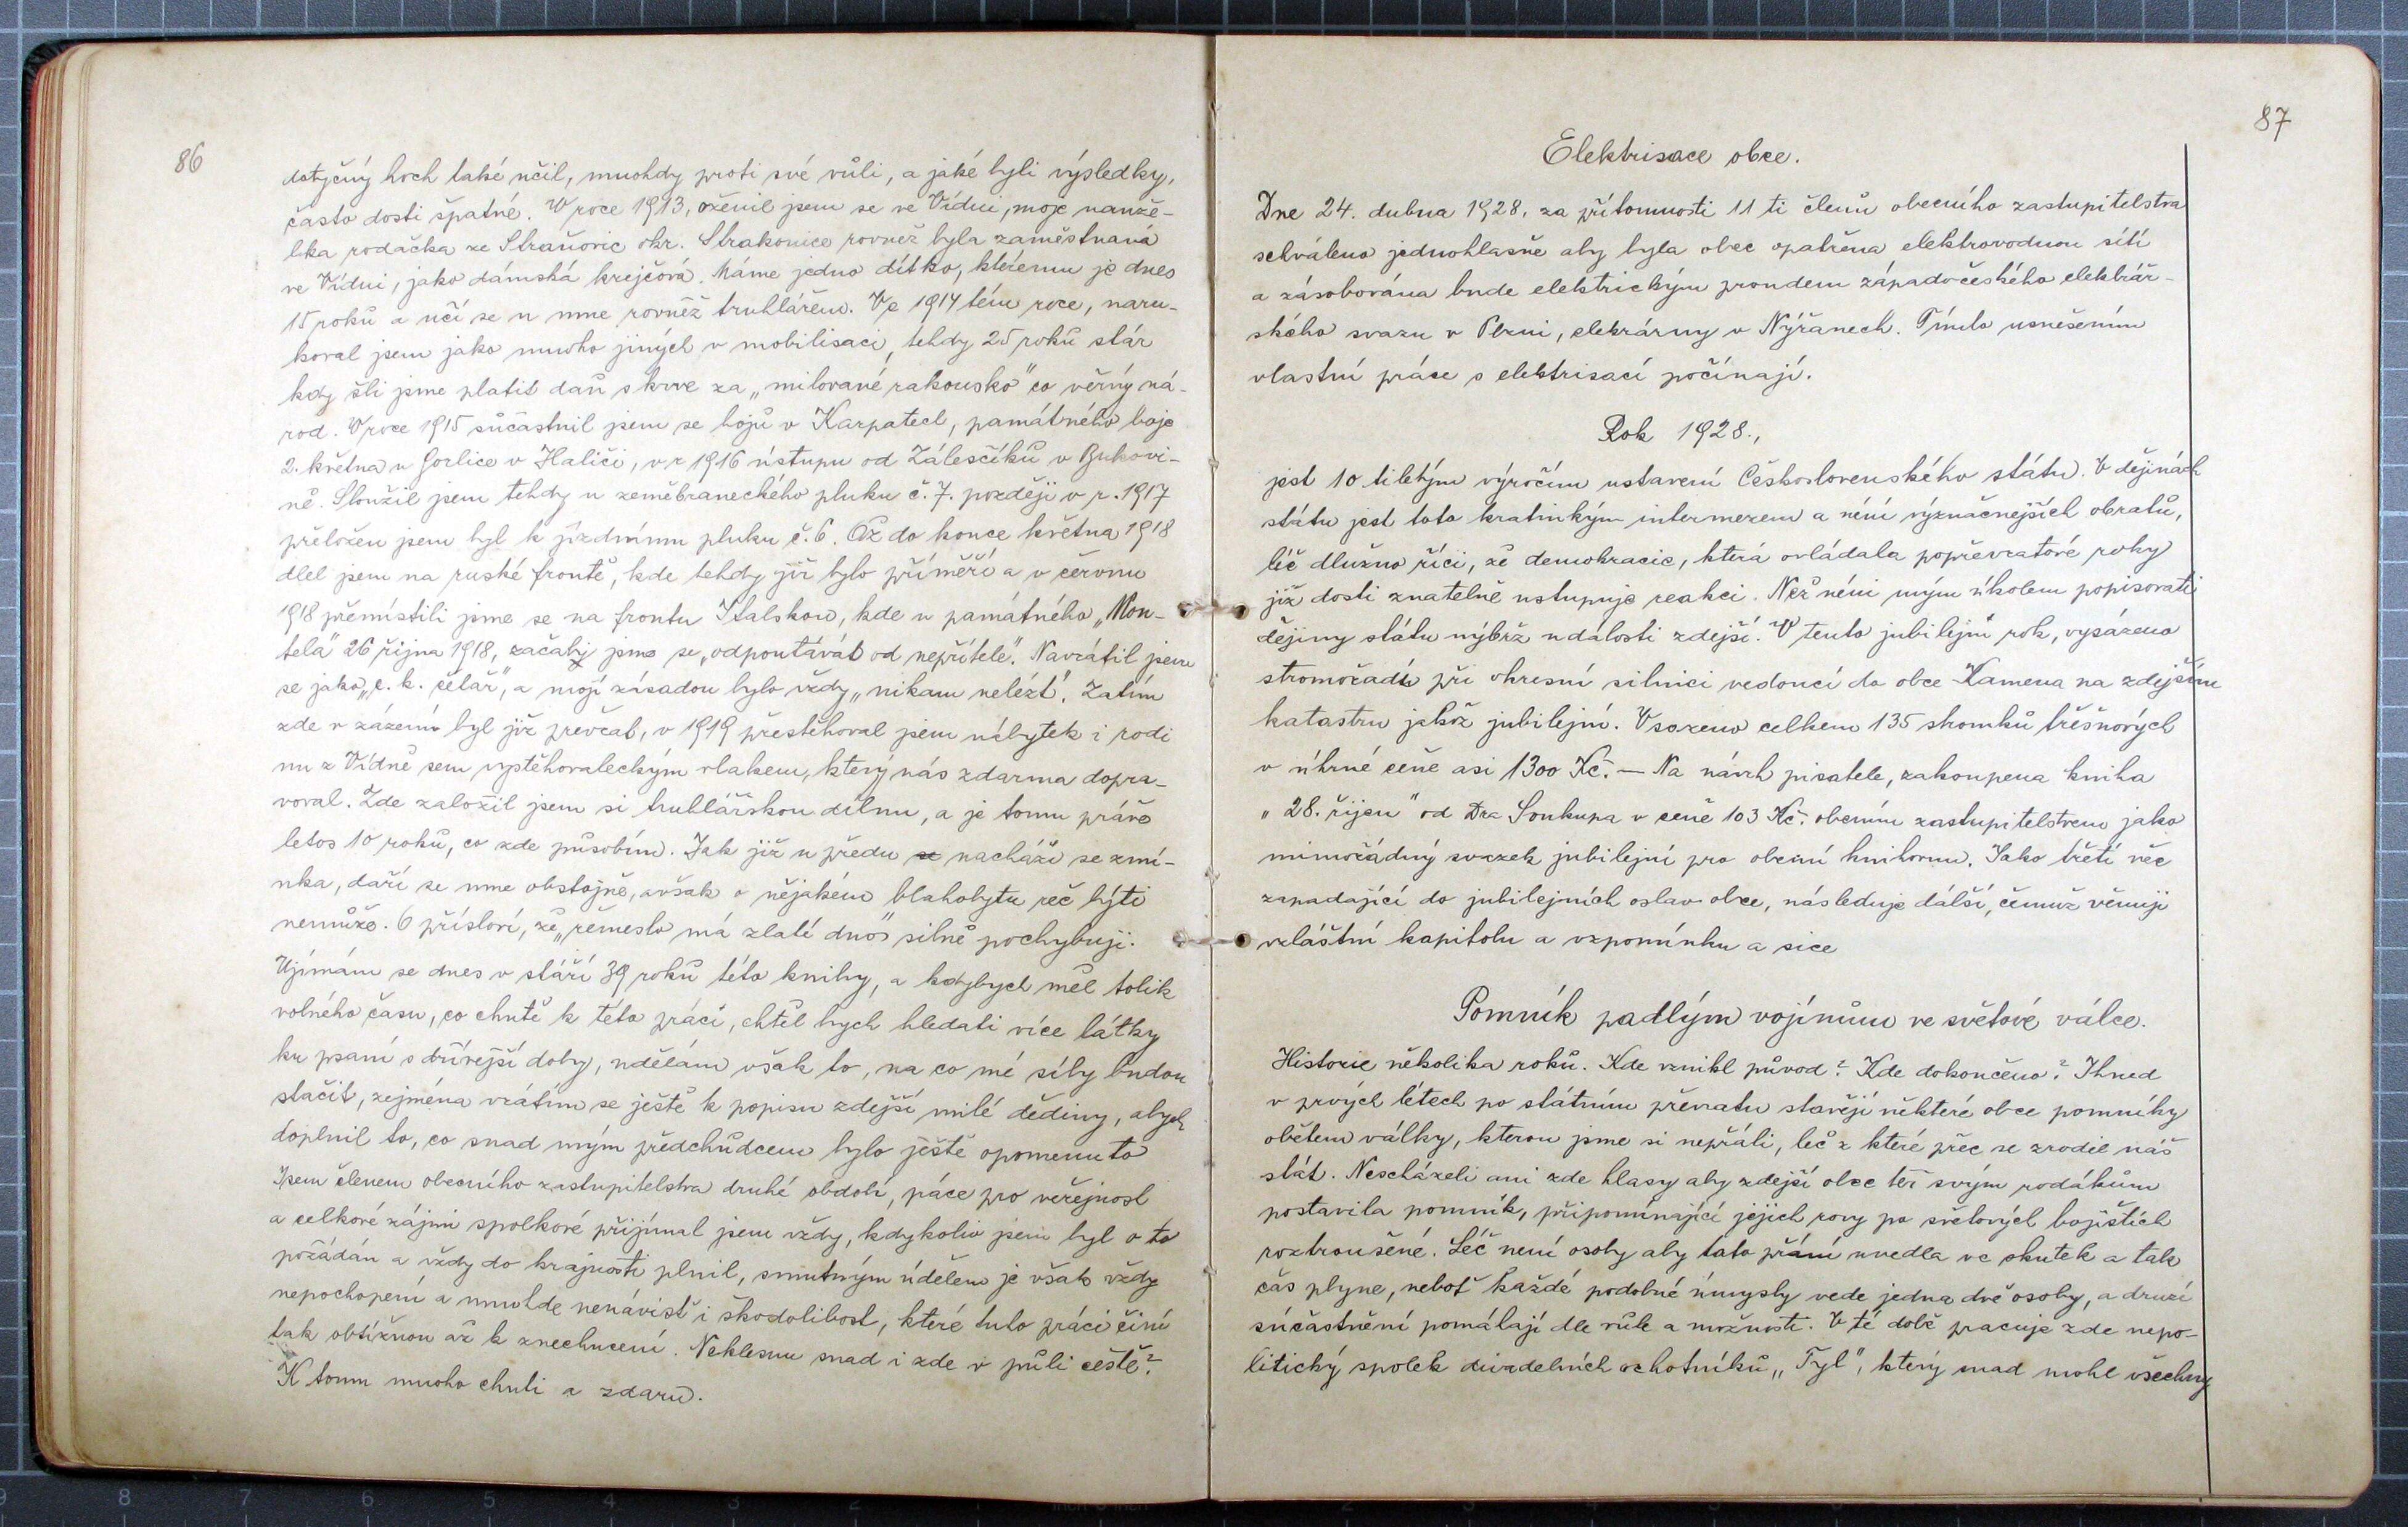 86
dotyčný hoch také učil, mnohdy proti své vůli, a jaké byli výsledky,
často dosti špatné. V roce 1913, oženil jsem se ve Vídni, moje manže-
lka rodačka ze Straňovic okr. Strakonice rovněž byla zaměstnaná
ve Vídni, jako dámská krejčová. Máme jedno dítko, kterému je dnes
15 roků a učí se u mne rovněž truhlářem. Ve 1914 tém roce, naru-
koval jsem jako mnoho jiných v mobilisaci, tehdy 25 roků stár
kdy šli jsme platit daň s krve za „milované rakousko" co věrný ná-
rod. V roce 1915 súčastnil jsem se bojů v Karpatech, památného boje
2. května u Gorlice v Haliči, v r 1916 ústupu od Zálesčíků v Bukovi-
ně. Sloužil jsem tehdy u zeměbraneckého pluku č. 7. později v r. 1917
přeložen jsem byl k jízdnímu pluku č. 6. Až do konce května 1918
dlel jsem na ruské frontě, kde tehdy již bylo příměří a v červnu
1918 přemístili jsme se na frontu Italskou, kde u památného „Mon-
tela" 26 října 1918, začaly jsme se „odpoutávat od nepřítele". Navrátil jsem
se jako „c. k. četař", a mojí zásadou bylo vždy „nikam nelézt". Zatím
zde v zázemí byl již převrat, v 1919 přestěhoval jsem nábytek i rodi
nu z Vídně sem vystěhovaleckým vlakem, který nás zdarma dopra-
voval. Zde založil jsem si truhlářskou dílnu, a je tomu právě
letos 10 roků, co zde působím. Jak již u předu se nachází se zmí-
nka, daří se mne obstojně, avšak o nějakém blahobytu řeč býti
nemůže. O přísloví, že „řemeslo má zlaté dno" silně pochybuji.
Ujímám se dnes v stáří 39 roků této knihy, a kdybych měl tolik
volného času, co chutě k této práci, chtěl bych hledati více látky
ku psaní s dřívější doby, udělám však to, na co mé síly budou
stačit, zejména vrátím se ještě k popisu zdejší milé dědiny, abych
doplnil to, co snad mým předchůdcem bylo ještě opomenuto
Jsem členem obecního zastupitelstva druhé období, páce pro veřejnost
a celkové zájmi spolkové přijímal jsem vždy, kdykoliv jsem byl o to
požádán a vždy do krajnosti plnil, smutným údělem je však vždy
nepochopení a mnohde nenávist i škodolibost, které tuto práci činí
tak obtížnou až k znechucení. Neklesnu snad i zde v půli cestě?
K tomu mnoho chuti a zdaru.
87
Elektrisace obce.
Dne 24. dubna 1928. za přítomnosti 11 ti členů obecního zastupitelstva
schváleno jednohlasně aby byla obec opatřena elektrovodnou sítí
a zásobována bude elektrickým proudem západočeského elektrár-
ského svazu v Plzni, elekrárny v Nýřanech. Tímto usnešením
vlastní práce s elektrisací počínají.
Rok 1928.,
jest 10 tiletým výročím ustavení Československého státu. V dějinách
státu jest toto kratinkým intermezem a néni význačnejších obratů,
léč dlužno říci, že demokracie, která ovládala popřevratové roky
již dosti znatelně ustupuje reakci. Než néni mým úkolem popisovati
dějiny státu nýbrž události zdejší. V tento jubilejní rok, vysázeno
stromořadí při okresní silnici vedoucí do obce Kamena na zdejším
katastru jakož jubilejní. Vsazeno celkem 135 stromků třešňových
v úhrné ceně asi 1300 Kč. — Na návrh pisatele, zakoupena kniha
„28. říjen" od Dra Soukupa v ceně 103 Kč. obením zastupitelstvem jako
mimořádný svazek jubilejní pro obecní knihovnu. Jako třetí věc
zapadající do jubilejních oslav obce, následuje dálší, čemuž věnuji
vzláštní kapitolu a vzpomínku a sice
Pomník padlým vojínům ve světové válce.
Historie několika roků. Kde vznikl původ? Kde dokončeno? Ihned
v prvých létech po státním převratu stavějí některé obce pomníky
obětem války, kterou jsme si nepřáli, leč z které přec se zrodil náš
stát. Nescházeli ani zde hlasy aby zdejší obec též svým rodákům
postavila pomník, připomínající jejich rovy po světových bojištích
roztroušené. Léč není osoby aby tato přání uvedla ve skutek a tak
čas plyne, neboť každé podobné úmysly vede jedna dvě osoby, a druzí
súčastnění pomáhají dle vůle a možnosti. V té době pracuje zde nepo-
litický spolek divadelních ochotníků „Tyl", který snad mohl všechny